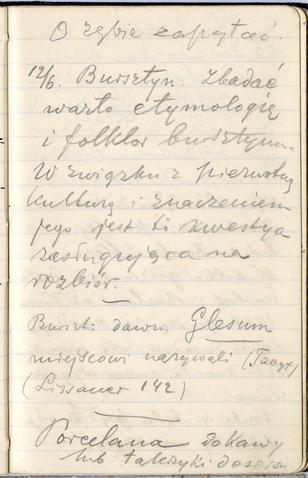 O rybie zapytać.
12/6. Bursztyn. Zbadać
warto etymologię
i folklor bursztynu.
W związku z pierwotną
kulturą i znaczeniem
jego jest to kwestya
zasługująca na
rozbiór.
Burszt. dawn. Glesum
miejscowi nazywali (Tacyt)
(Lissauer 142)
Porcelana do kawy
lub talerzyki deserow